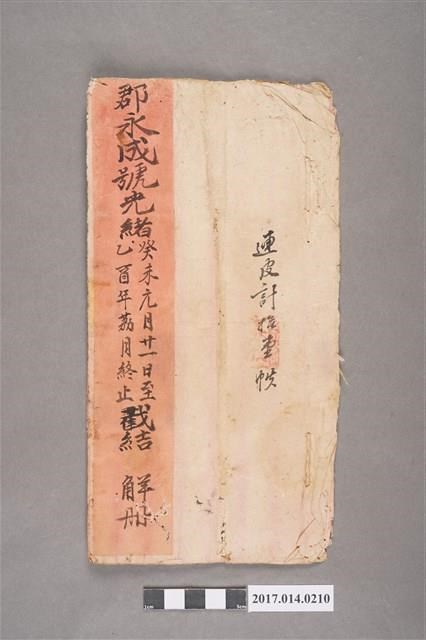 連皮計拾壹帙
郡永成號光緒
癸未元月廿一日至
乙酉年荔月終止
截結
册
1cm
5cm
2017.014.0210